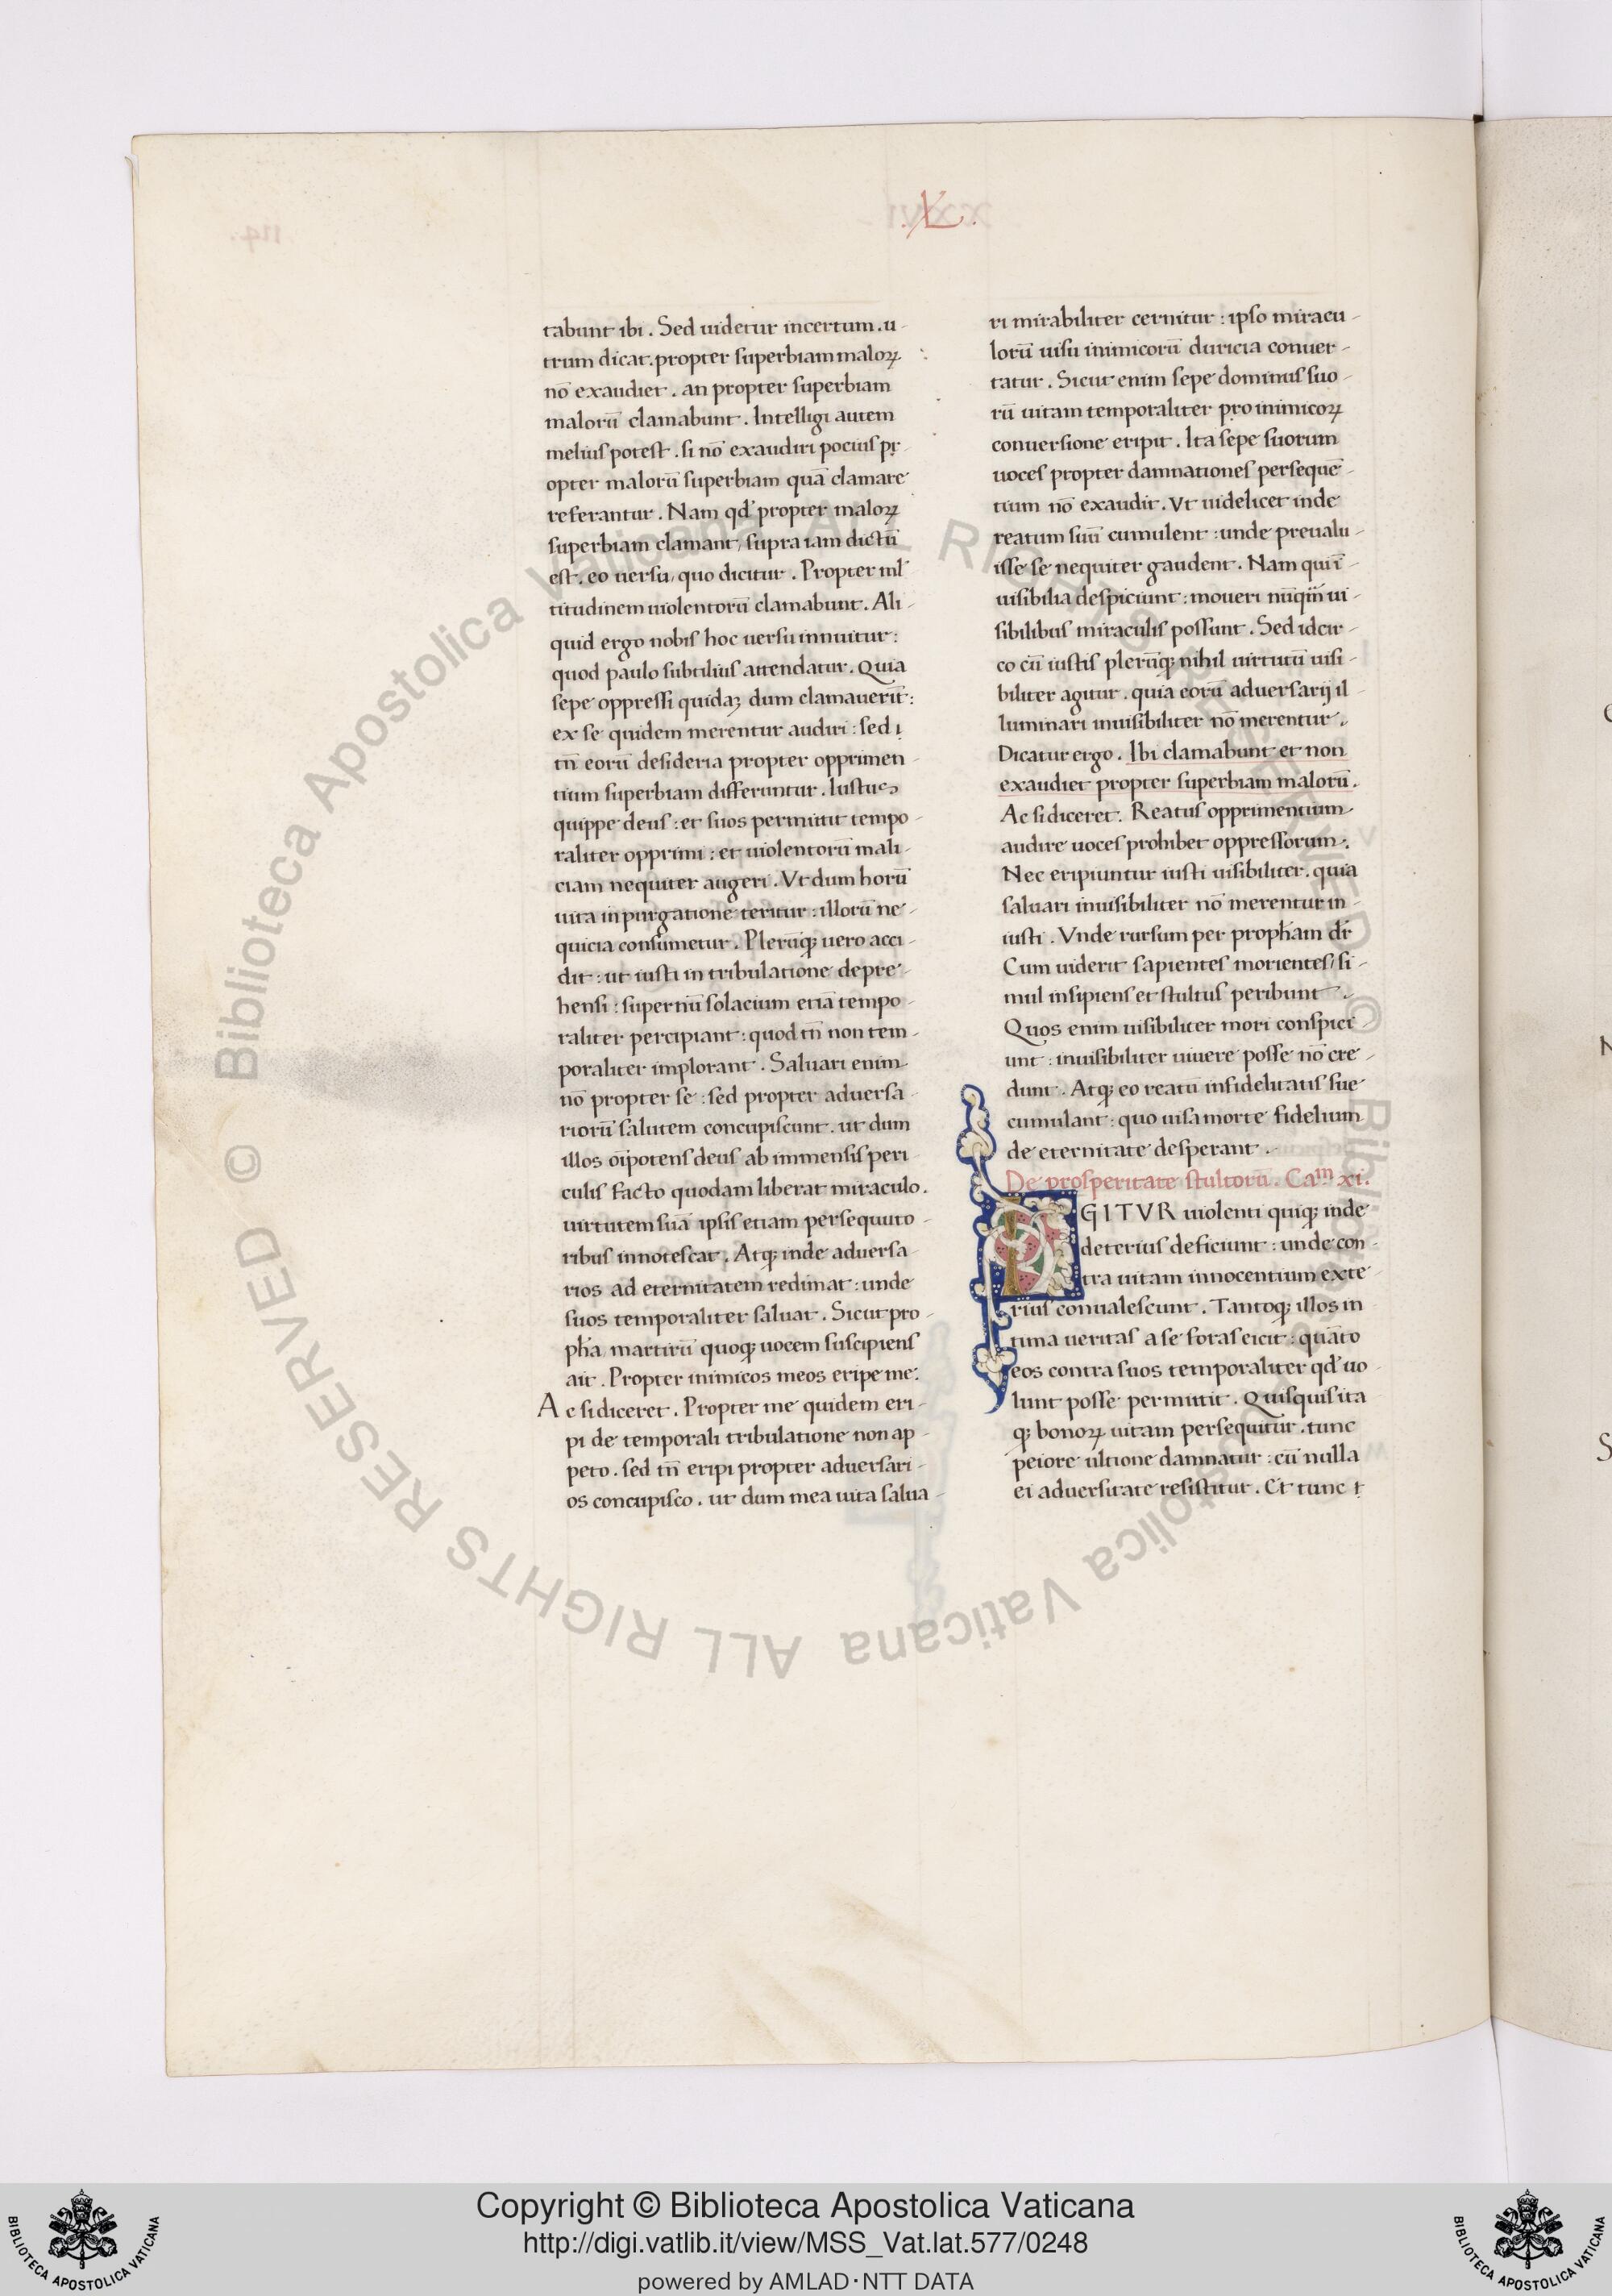 .L.
tabunt ibi . Sed uidetur incertum . u-
trum dicat . propter superbiam maloꝝ
nō exaudiet . an propter superbiam
malorū clamabunt . Intelligi autem
melius potest . si nō exaudiri pocius pr-
opter malorū superbiam quā clamare
referantur . Nam qđ propter maloꝝ
superbiam clamant, supra iam dictū
est . eo uersu, quo dicitur . Propter ml̄
titudinem uiolentorū clamabunt . Ali-
quid ergo nobis hoc uersu innuitur :
quod paulo subtilius attendatur . Quia
sepe oppressi quidaꝫ dum clamauerīt :
ex se quidem merentur audiri : sed ı
tn̄ eorū desideria propter opprimen-
tium superbiam differuntur . Iustus
quippe deus : et suos permittit tempo-
raliter opprimi : et uiolentorū mali-
ciam nequiter augeri . Vt dum horū
uita in purgatione teritur : illorū ne-
quicia consumetur . Plerūqꝫ uero acci-
dit : ut iusti in tribulatione depre-
hensi : supernū solacium etiā tempo-
raliter percipiant : quod tn̄ non tem-
poraliter implorant . Saluari enim
nō propter se : sed propter aduersa-
riorū salutem concupiscunt . ut dum
illos oīpotens deus ab immensis peri-
culis facto quodam liberat miraculo .
uirtutem suā ipsis etiam persequuto-
ribus innotescat . Atqꝫ inde aduersa-
rios ad eternitatem redimat : unde
suos temporaliter saluat . Sicut pro-
ph̄a martirū quoqꝫ uocem suscipiens
ait . Propter inimicos meos eripe me :
Ac si diceret . Propter me quidem eri-
pi de temporali tribulatione non ap-
peto . sed tn̄ eripi propter aduersari-
os concupisco . ut dum mea uita salua-
ri mirabiliter cernitur : ipso miracu-
lorū uisu inimicorū duricia conuer-
tatur . Sicut enim sepe dominus suo-
rū uitam temporaliter pro inimicoꝝ
conuersione eripit . Ita sepe suorum
uoces propter damnationes persequē-
tium nō exaudit . Vt uidelicet inde
reatum suū cumulent : unde preualu-
isse se nequiter gaudent . Nam qui ī-
uisibilia despiciunt : moueri nūqm̄ ui-
sibilibus miraculis possunt . Sed idcir-
co cū iustis plerūqꝫ nihil uirtutū uisi-
biliter agitur . quia eorū aduersarij il-
luminari inuisibiliter nō merentur .
Dicatur ergo . Ibi clamabunt et non
exaudiet propter superbiam malorū .
Ac si diceret . Reatus opprimentium
audire uoces prohibet oppressorum .
Nec eripiuntur iusti uisibiliter . quia
saluari inuisibiliter nō merentur in-
iusti . Vnde rursum per proph̄am dr̄
Cum uiderit sapientes morientes, si-
mul insipiens et stultus peribunt .
Quos enim uisibiliter mori conspici-
unt : inuisibiliter uiuere posse nō cre-
dunt . Atqꝫ eo reatū infidelitatis sue
cumulant : quo uisa morte fidelium
de eternitate desperant .
De prosperitate stultorū . Caᵐ xi .
IGITVR uiolenti quiqꝫ inde
deterius deficiunt : unde con-
tra uitam innocentium exte-
rius conualescunt . Tantoqꝫ illos in
tima ueritas a se foras eicit : quāto
eos contra suos temporaliter qđ uo-
lunt posse permittit . Quisquis ita
qꝫ bonoꝝ uitam persequitur . tunc
peiore ultione damnatur : cū nulla
ei aduersitate resistitur . Et tunc ı
© Biblioteca Apostolica Vaticana ALL RIGHTS RESERVED © Biblioteca Apostolica Vaticana ALL RIGHTS RESERVED
Copyright © Biblioteca Apostolica Vaticana
http://digi.vatlib.it/view/MSS_Vat.lat.577/0248
powered by AMLAD·NTT DATA
BIBLIOTECA APOSTOLICA VATICANA
BIBLIOTECA APOSTOLICA VATICANA